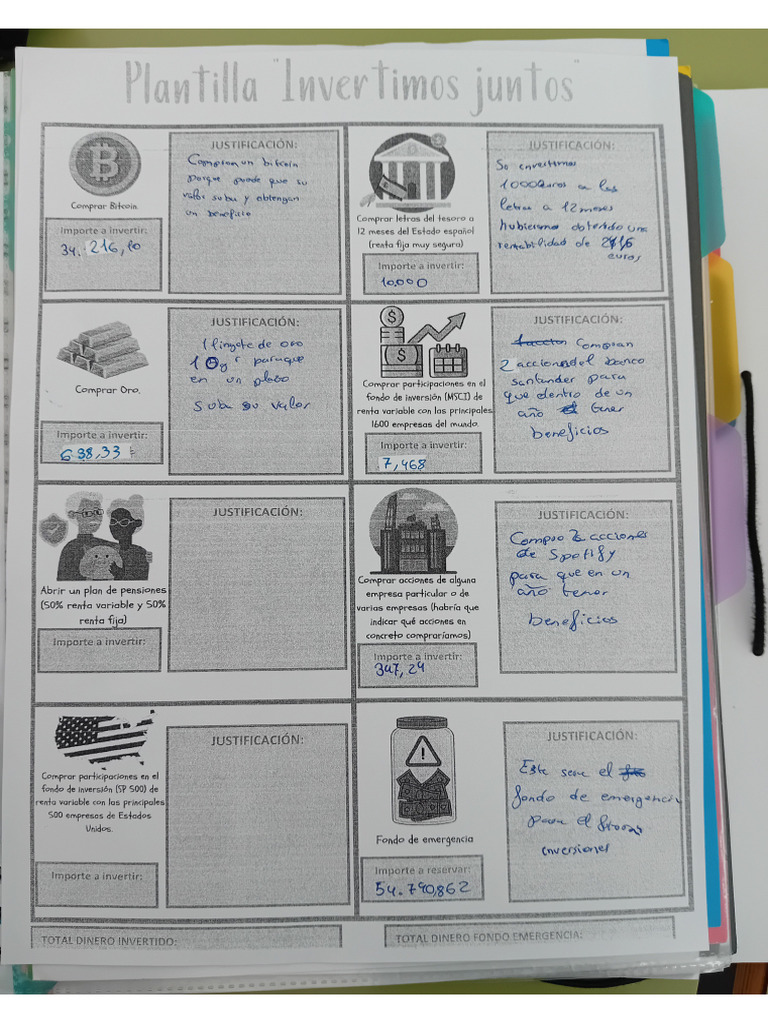 Plantilla "Invertimos juntos"
Comprar Bitcoin.
Importe a invertir:
34.216,10
JUSTIFICACIÓN:
Compran un bitcoin
porque puede que su
valor suba y obtengan
un beneficio
Comprar letras del tesoro a
12 meses del Estado español
(renta fija muy segura)
Importe a invertir:
10.000
JUSTIFICACIÓN:
So envertimos
10000 euros en las
letras a 12 meses
hubieramos obtenido una
rentabilidad de
euros
Comprar Oro.
Importe a invertir:
638,33
JUSTIFICACIÓN:
1 lingote de oro
10gr para que
en un plazo
suba su valor
Comprar participaciones en el
fondo de inversión (MSCI) de
renta variable con las principales
1600 empresas del mundo.
Importe a invertir:
7,468
JUSTIFICACIÓN:
Compran
2 acciones del banco
santander para
que dentro de un
año tener
beneficios
Abrir un plan de pensiones
(50% renta variable y 50%
renta fija)
Importe a invertir:
JUSTIFICACIÓN:
Comprar acciones de alguna
empresa particular o de
varias empresas (habría que
indicar qué acciones en
concreto compraríamos)
Importe a invertir:
347,24
JUSTIFICACIÓN:
Compro 2 acciones
de Spotify
para que en un
año tener
beneficios
Comprar participaciones en el
fondo de inversión (SP 500) de
renta variable con las principales
500 empresas de Estados
Unidos.
Importe a invertir:
JUSTIFICACIÓN:
Fondo de emergencia
Importe a reservar:
54.790,862
JUSTIFICACIÓN:
Este sera el
fondo de emergencia
para el
inversiones
TOTAL DINERO INVERTIDO:
TOTAL DINERO FONDO EMERGENCIA: